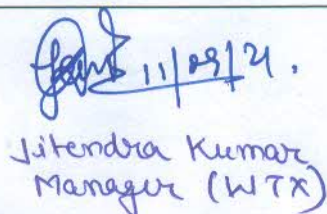 11/09/21.
Jitendra Kumar
Manager (WTX)